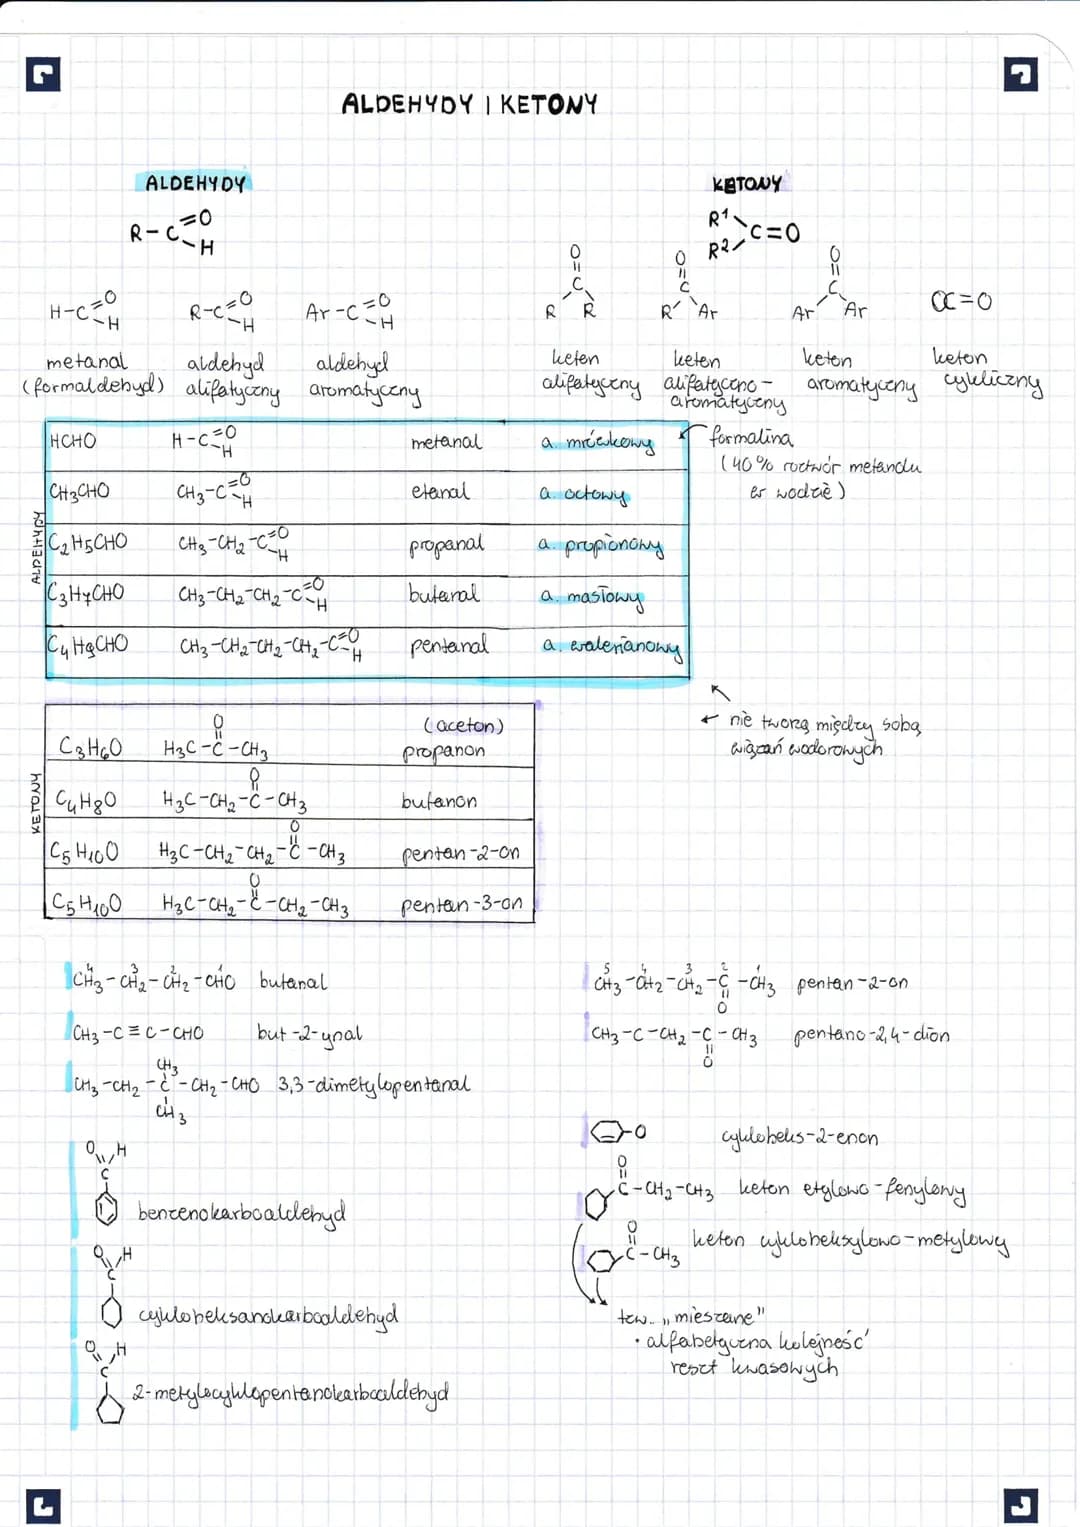 ALDEHYDY I KETONY
ALDEHYDY
KETONY
R-C=O
-H
R1
R2
C=O
H-C=O
-H
R-C=O
-H
Ar-C=O
-H
O
=
C
R R
O
=
C
R Ar
O
=
C
Ar Ar
C=O
metanal
(formaldehyd)
aldehyd
alifatyczny
aldehyd
aromatyczny
keton
alifatyczny
keton
alifatyczno-
aromatyczny
keton
aromatyczny
keton
cykliczny
ALDEHYDY
HCHO H-C=O -H metanal a. mrówkowy
CH3CHO CH3-C=O -H etanal a. octowy
C2H5CHO CH3-CH2-C=O -H propanal a. propionowy
C3H7CHO CH3-CH2-CH2-C=O -H butanal a. masłowy
C4H9CHO CH3-CH2-CH2-CH2-C=O -H pentanal a. walerianowy
formalina
(40% roztwór metanalu
w wodzie)
nie tworzą między sobą
wiązań wodorowych
KETONY
C3H6O H3C-C(=O)-CH3 (aceton)
propanon
C4H8O H3C-CH2-C(=O)-CH3 butanon
C5H10O H3C-CH2-CH2-C(=O)-CH3 pentan-2-on
C5H10O H3C-CH2-C(=O)-CH2-CH3 pentan-3-on
4 3 2 1
CH3-CH2-CH2-CHO butanal
CH3-C≡C-CHO but-2-ynal
CH3
CH3-CH2-C-CH2-CHO 3,3-dimetylopentanal
CH3
O H
C
benzenokarboaldehyd
O H
C
cykloheksanokarboaldehyd
O H
C
2-metylocyklopentanokarboaldehyd
5 4 3 2 1
CH3-CH2-CH2-C-CH3 pentan-2-on
O
CH3-C-CH2-C-CH3 pentano-2,4-dion
O
=O cykloheks-2-enon
O
C-CH2-CH3 keton etylowo-fenylowy
O
C-CH3 keton cykloheksylowo-metylowy
tzw. „mieszane"
• alfabetyczna kolejność
reszt kwasowych